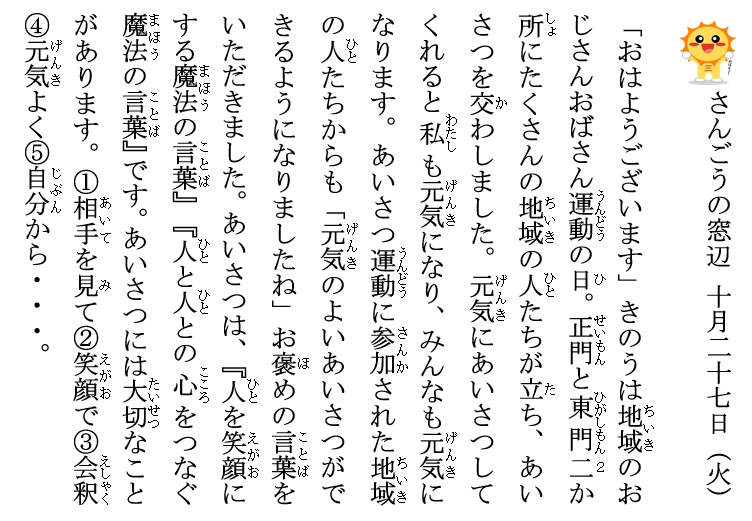 さんごうの窓辺 十月二十七日(火)
「おはようございます」きのうは地域のお
じさんおばさん運動の日。正門と東門二か
所にたくさんの地域の人たちが立ち、あい
さつを交わしました。元気にあいさつして
くれると私も元気になり、みんなも元気に
なります。あいさつ運動に参加された地域
の人たちからも「元気のよいあいさつがで
きるようになりましたね」お褒めの言葉を
いただきました。あいさつは、『人を笑顔に
する魔法の言葉』『人と人との心をつなぐ
魔法の言葉』です。あいさつには大切なこと
があります。①相手を見て②笑顔で③会釈
④元気よく⑤自分から・・・。